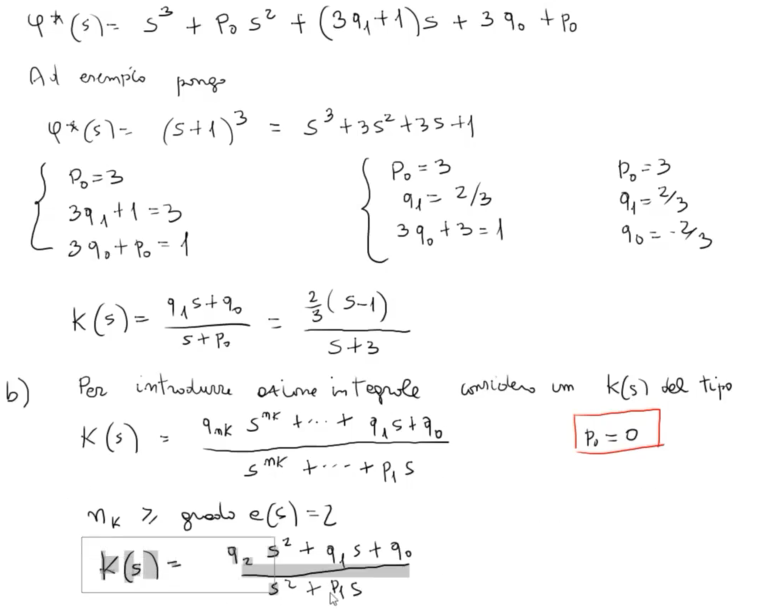 φ*(s) = s³ + p₀ s² + (3q₁+1)s + 3q₀ + p₀
Ad esempio pongo
φ*(s) = (s+1)³ = s³+3s²+3s+1
p₀=3 p₀=3 p₀=3
3q₁+1=3 q₁=2/3 q₁=2/3
3q₀+p₀=1 3q₀+3=1 q₀=-2/3
K(s) = (q₁s+q₀)/(s+p₀) = (2/3 (s-1))/(s+3)
b) Per introdurre azione integrale considero un K(s) del tipo
K(s) = (q_{nK} s^{nK} + ... + q₁s+q₀)/(s^{nK} + ... + p₁s) p₀=0
n_K ≥ grado e(s) = 2
K(s) = (q₂ s² + q₁s + q₀)/(s² + p₁s)